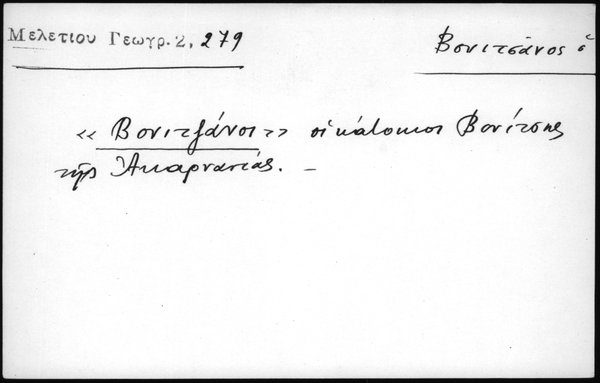 Μελετίου Γεωγρ. 2, 279
Βονιτσάνος ὁ
«Βονιτζάνοι» οἱ κάτοικοι Βονίτσης
τῆς Ἀκαρνανίας. –